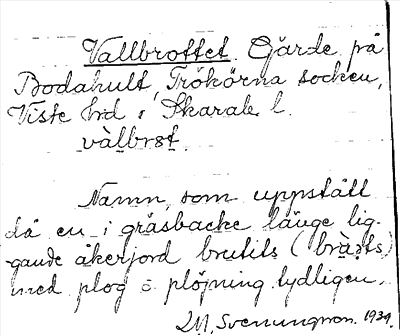 Vallbrottet. Gärde på
Bodahult, Trökörna socken,
Viste hrd i Skarab. l.
vàlbrɘt.
Namn, som uppstått
då en i gräsbacke länge lig-
gande åkerjord brutits (bràts)
med plog o plöjning tydligen.
L.M. Svenungson. 1939.